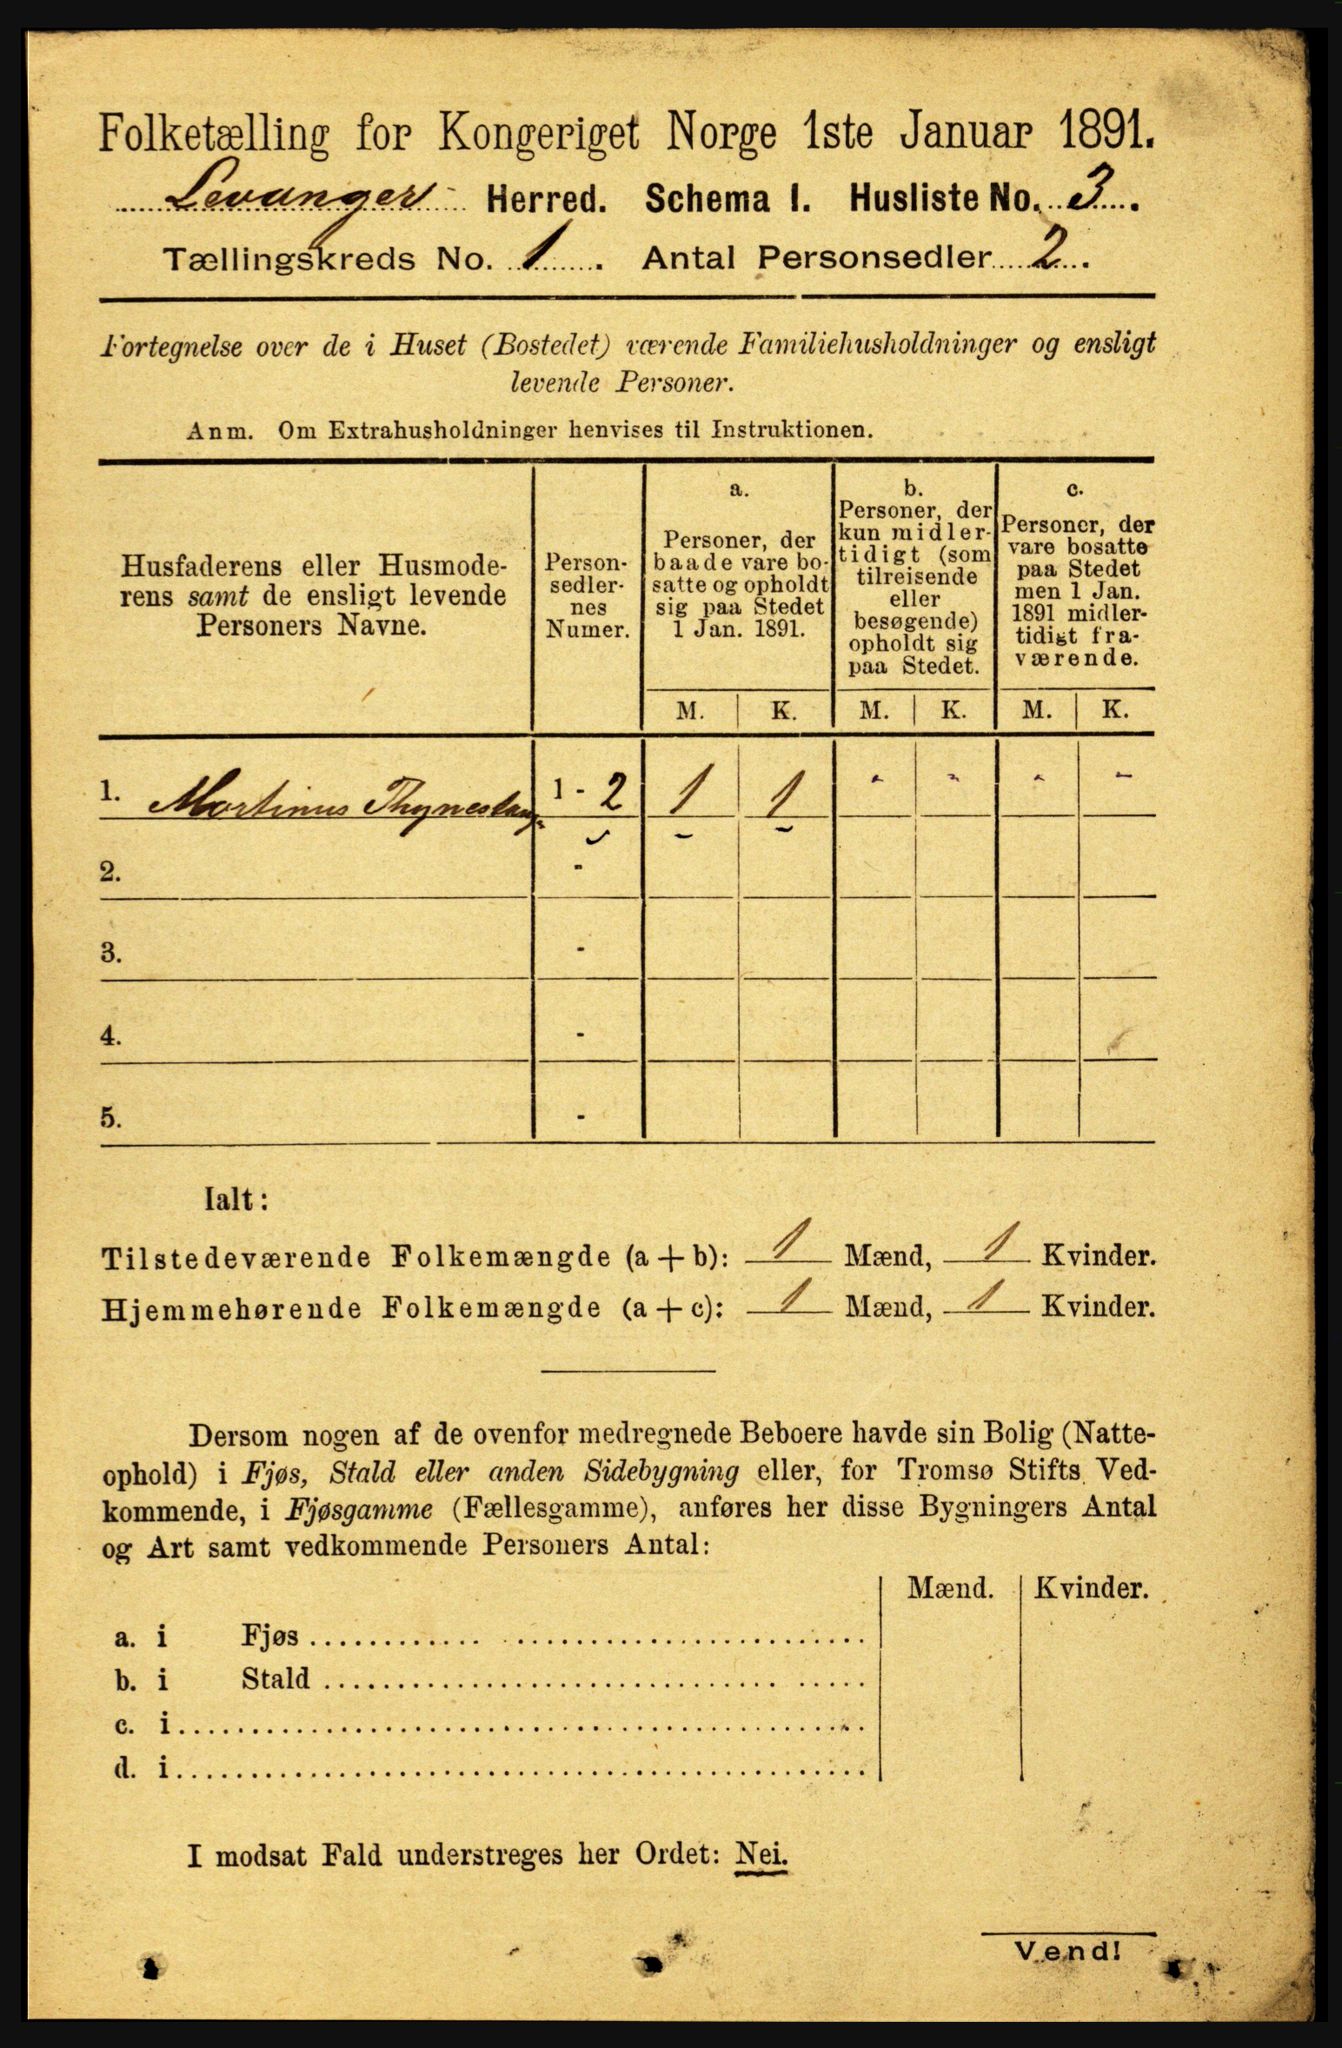 Folketælling for Kongeriget Norge 1ste Januar 1891.
Levanger Herred. Schema I. Husliste No. 3.
Tællingskreds No. 1. Antal Personsedler 2.
Fortegnelse over de i Huset (Bostedet) værende Familiehusholdninger og ensligt
levende Personer.
Anm. Om Extrahusholdninger henvises til Instruktionen.
Husfaderens eller Husmode-
rens samt de ensligt levende
Personers Navne.
Person-
sedler-
nes
Numer.
a.
Personer, der
baade vare bo-
satte og opholdt
sig paa Stedet
1 Jan. 1891.
b.
Personer, der
kun midler-
tidigt (som
tilreisende
eller
besøgende)
opholdt sig
paa Stedet.
c.
Personer, der
vare bosatte
paa Stedet
men 1 Jan.
1891 midler-
tidigt fra-
værende.
M. K. M. K. M. K.
1. Martinus 1 - 2 1 1 - - - -
2. -
3. -
4. -
5. -
Ialt:
Tilstedeværende Folkemængde (a + b): 1 Mænd, 1 Kvinder.
Hjemmehørende Folkemængde (a + c): 1 Mænd, 1 Kvinder.
Dersom nogen af de ovenfor medregnede Beboere havde sin Bolig (Natte-
ophold) i Fjøs, Stald eller anden Sidebygning eller, for Tromsø Stifts Ved-
kommende, i Fjøsgamme (Fællesgamme), anføres her disse Bygningers Antal
og Art samt vedkommende Personers Antal:
Mænd. Kvinder.
a. i Fjøs
b. i Stald
c. i
d. i
I modsat Fald understreges her Ordet: Nei.
Vend!